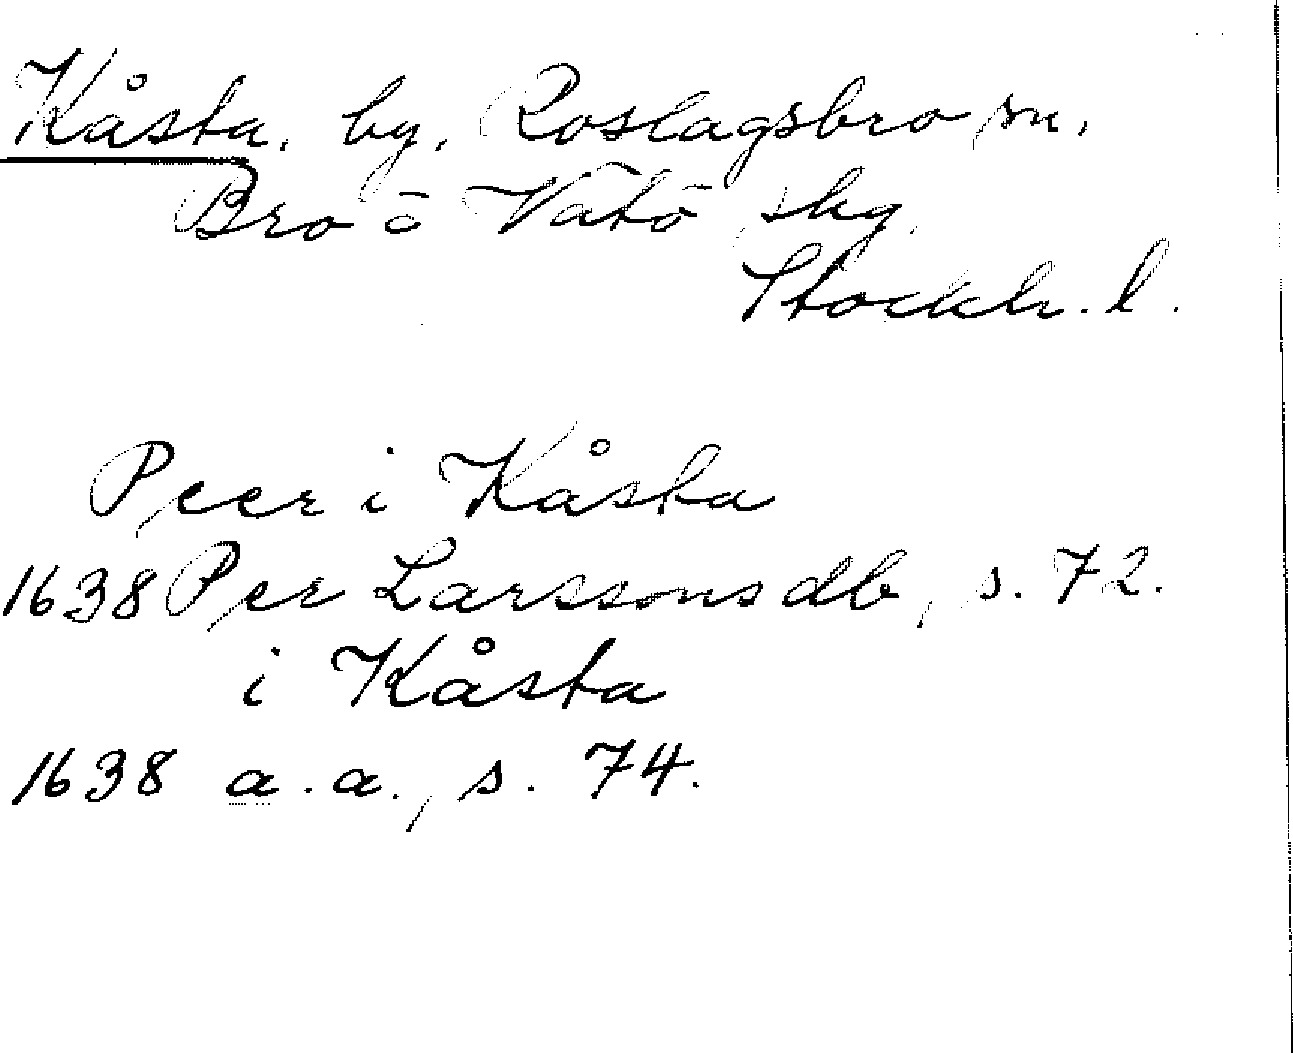 Kåsta, by, Roslagsbro sn,
Bro o Vätö skg
Stockh. l.
Peer i Kåsta
1638 Per Larssons db, s. 72.
i Kåsta
1638 a. a., s. 74.